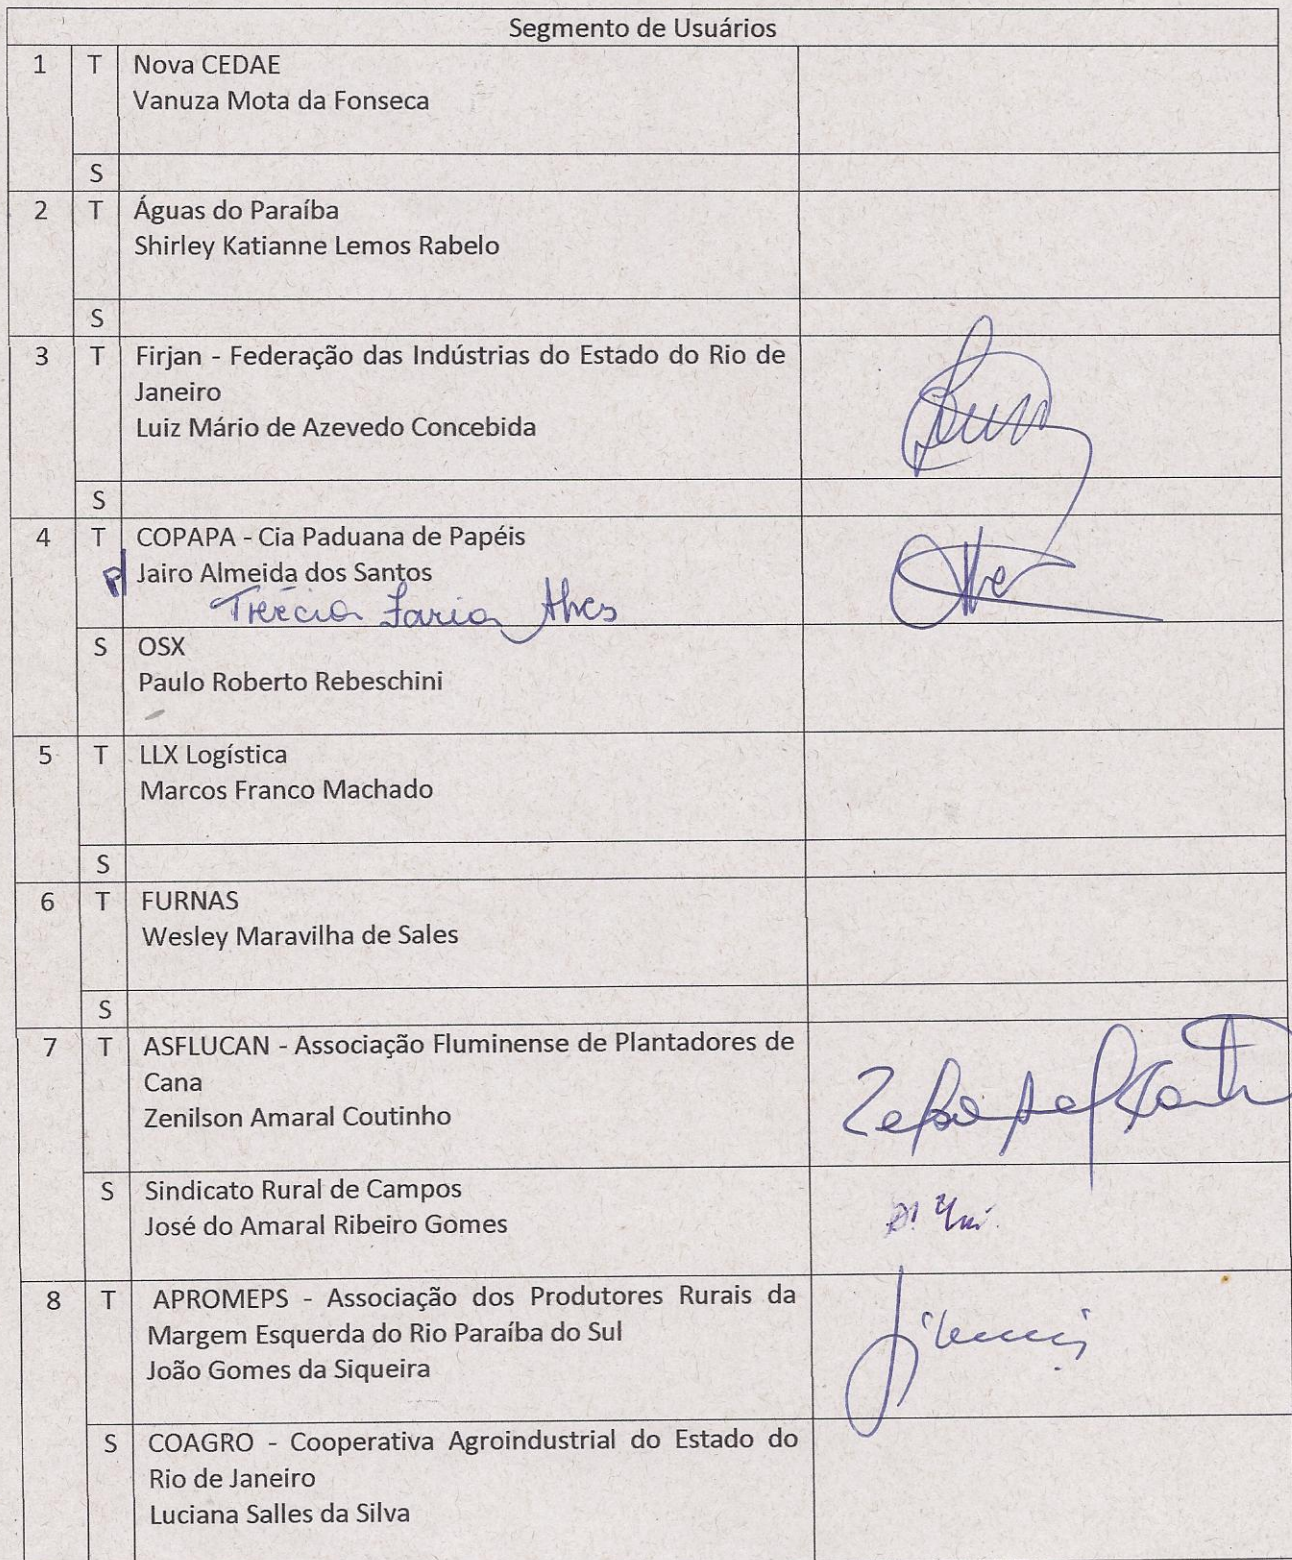 Segmento de Usuários
1 T Nova CEDAE
Vanuza Mota da Fonseca
S
2 T Águas do Paraíba
Shirley Katianne Lemos Rabelo
S
3 T Firjan - Federação das Indústrias do Estado do Rio de
Janeiro
Luiz Mário de Azevedo Concebida
S
4 T COPAPA - Cia Paduana de Papéis
p/ Jairo Almeida dos Santos
Faria Alves
S OSX
Paulo Roberto Rebeschini
5 T LLX Logística
Marcos Franco Machado
S
6 T FURNAS
Wesley Maravilha de Sales
S
7 T ASFLUCAN - Associação Fluminense de Plantadores de
Cana
Zenilson Amaral Coutinho
S Sindicato Rural de Campos
José do Amaral Ribeiro Gomes
8 T APROMEPS - Associação dos Produtores Rurais da
Margem Esquerda do Rio Paraíba do Sul
João Gomes da Siqueira
S COAGRO - Cooperativa Agroindustrial do Estado do
Rio de Janeiro
Luciana Salles da Silva